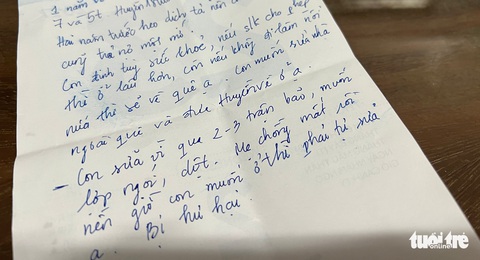 1 năm
7 và 5t Huyện
Hai năm trước heo dịch tả nên
cung trả nở một mớ.
Con định tùy sức khoẻ, nếu slk cho phép
thì ở lâu hơn, còn nếu không đi làm nổi
nữa thì sẽ về quê ạ. Con muốn sửa nhà
ngoài quê và đưa Huyền về ở ạ.
- Con sửa vì qua 2-3 trận bảo, muốn
lớp ngói, dột. Mẹ chồng mất rồi
nên giờ con muốn ở thì phải tự sửa
ạ. Bị hư hại.
tuổi trẻ
online